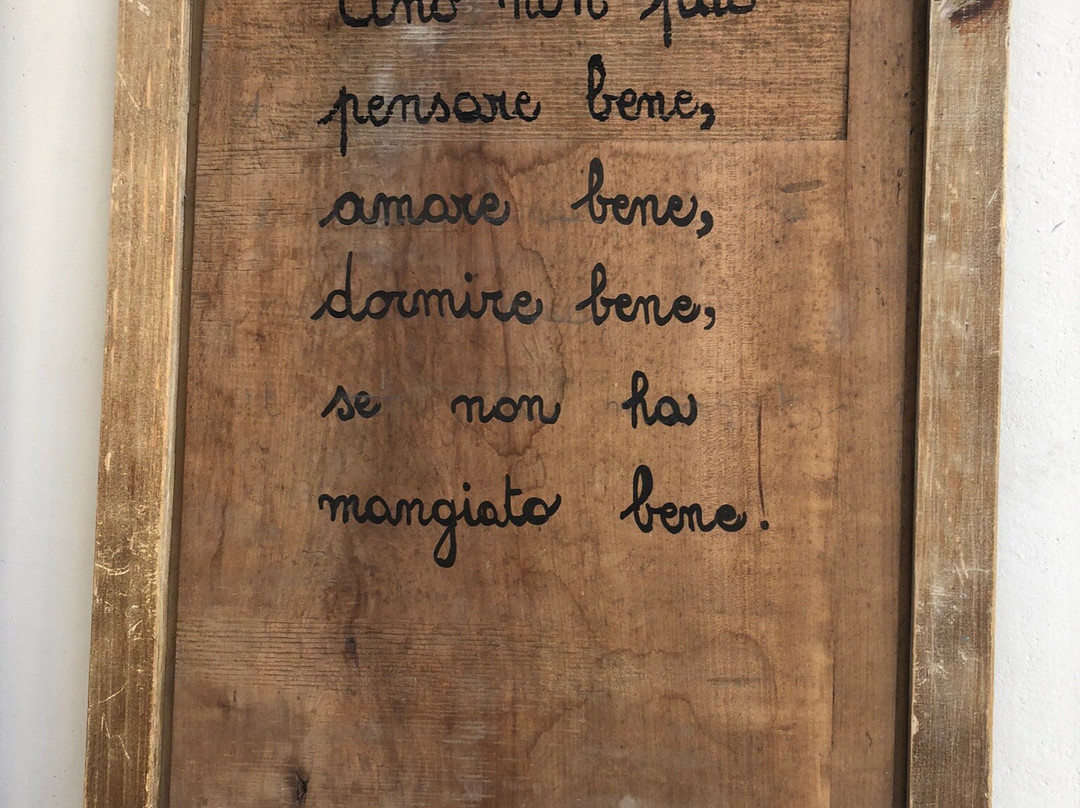 Uno non può
pensare bene,
amare bene,
dormire bene,
se non ha
mangiato bene.